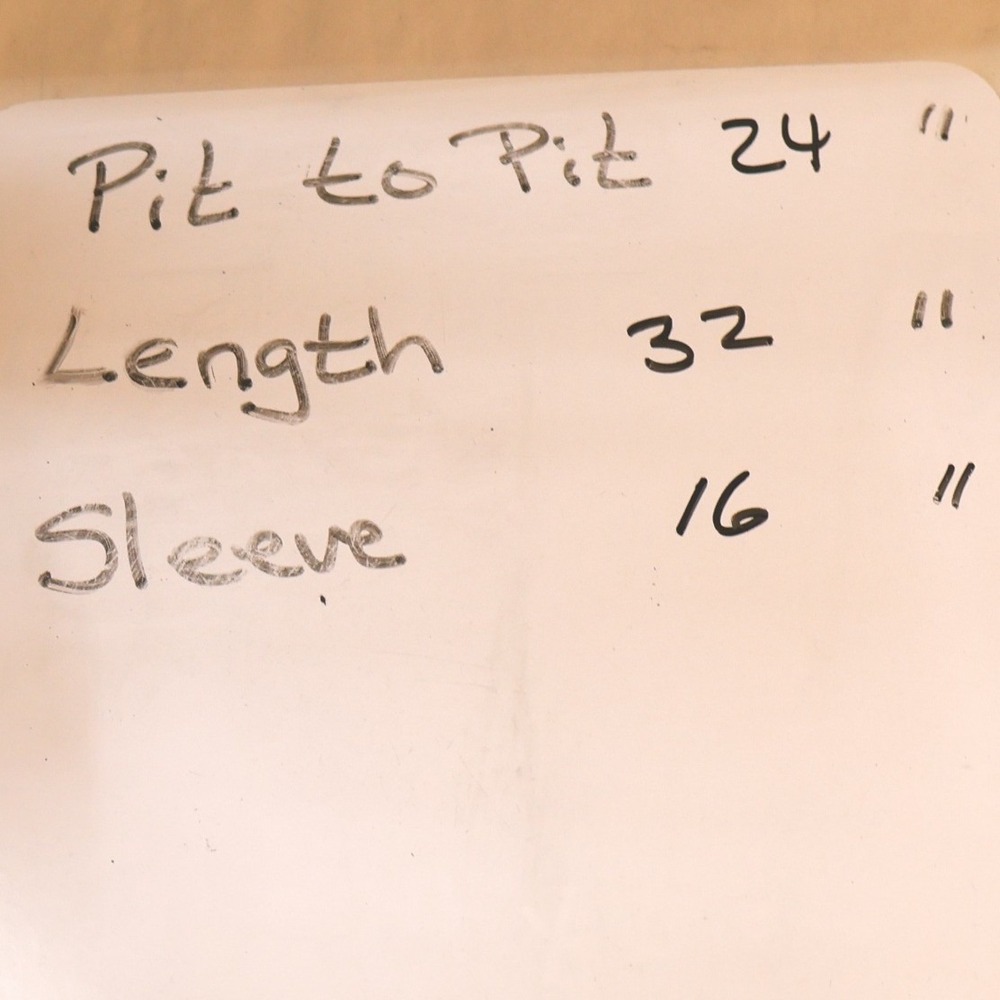 Pit to Pit 24 "
Length 32 "
Sleeve 16 "